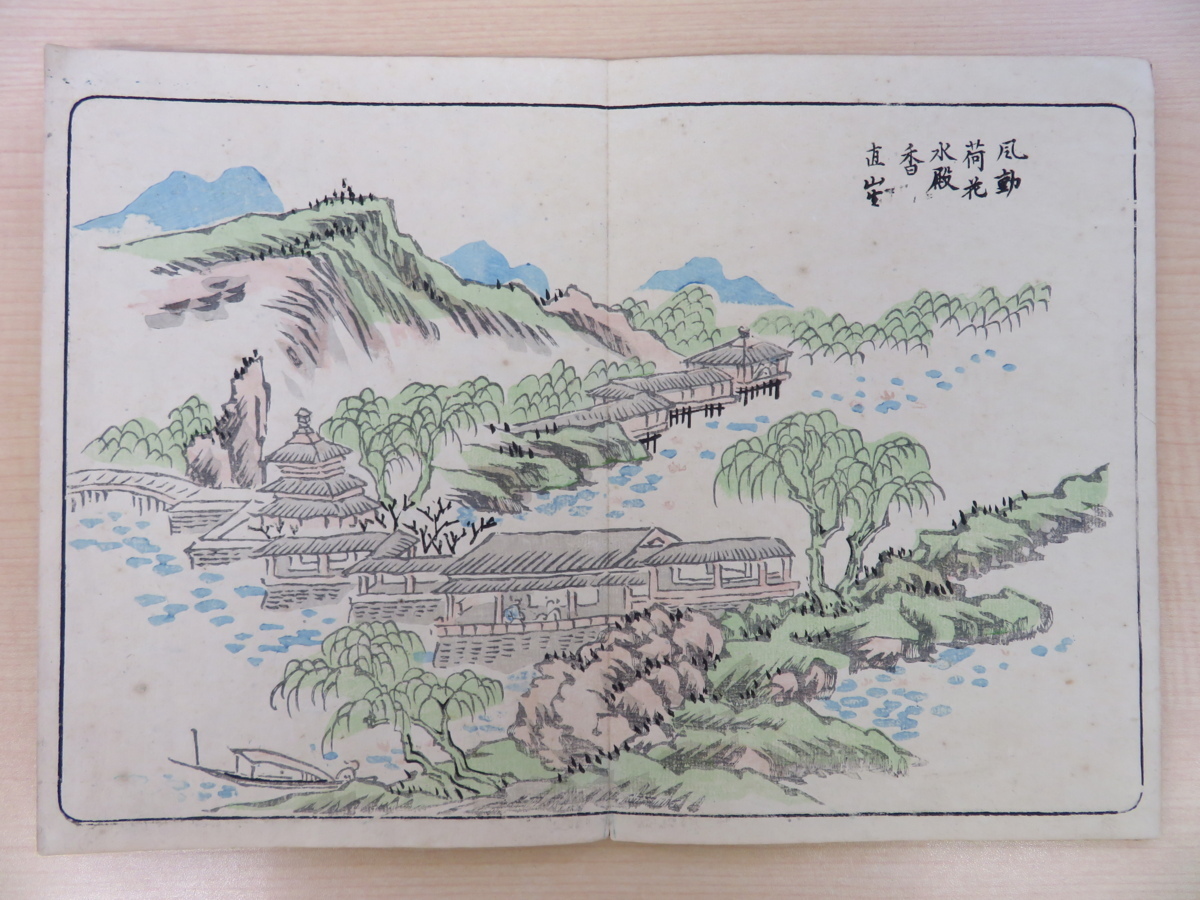 風動
荷花
水殿
香
直山